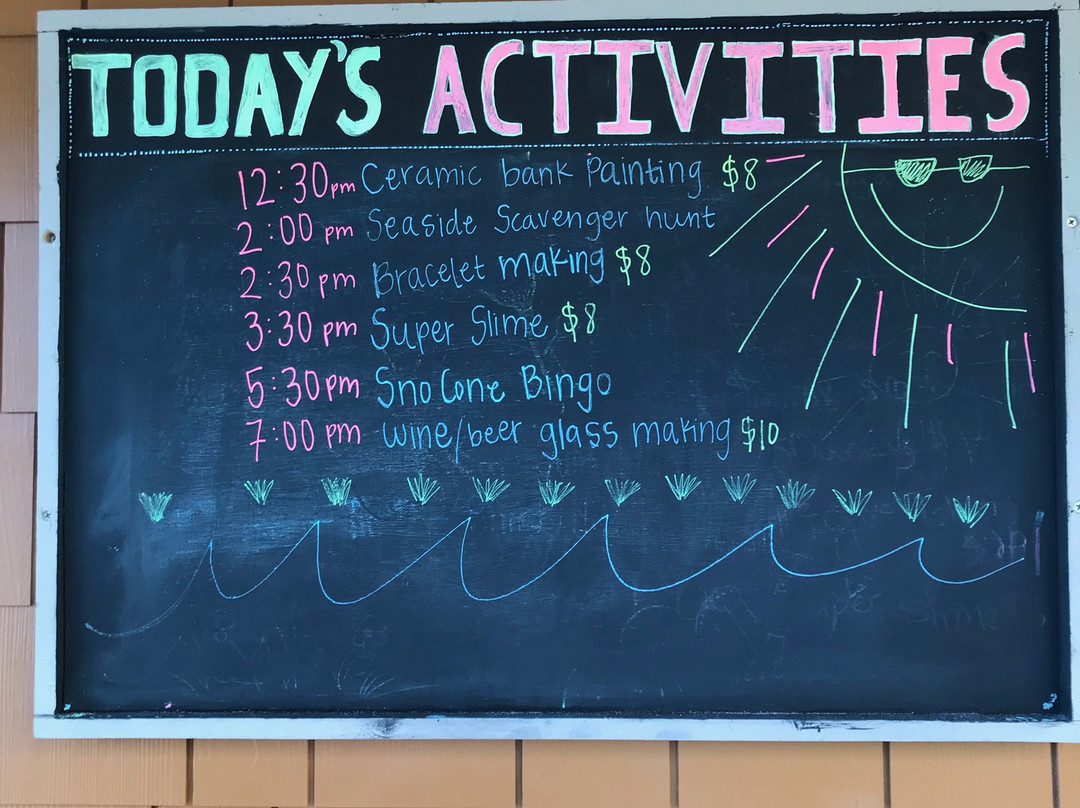 TODAY'S ACTIVITIES
12:30pm Ceramic bank Painting $8
2:00 pm Seaside Scavenger hunt
2:30 pm Bracelet making $8
3:30 pm Super Slime $8
5:30pm Sno Cone Bingo
7:00 pm wine/beer glass making $10